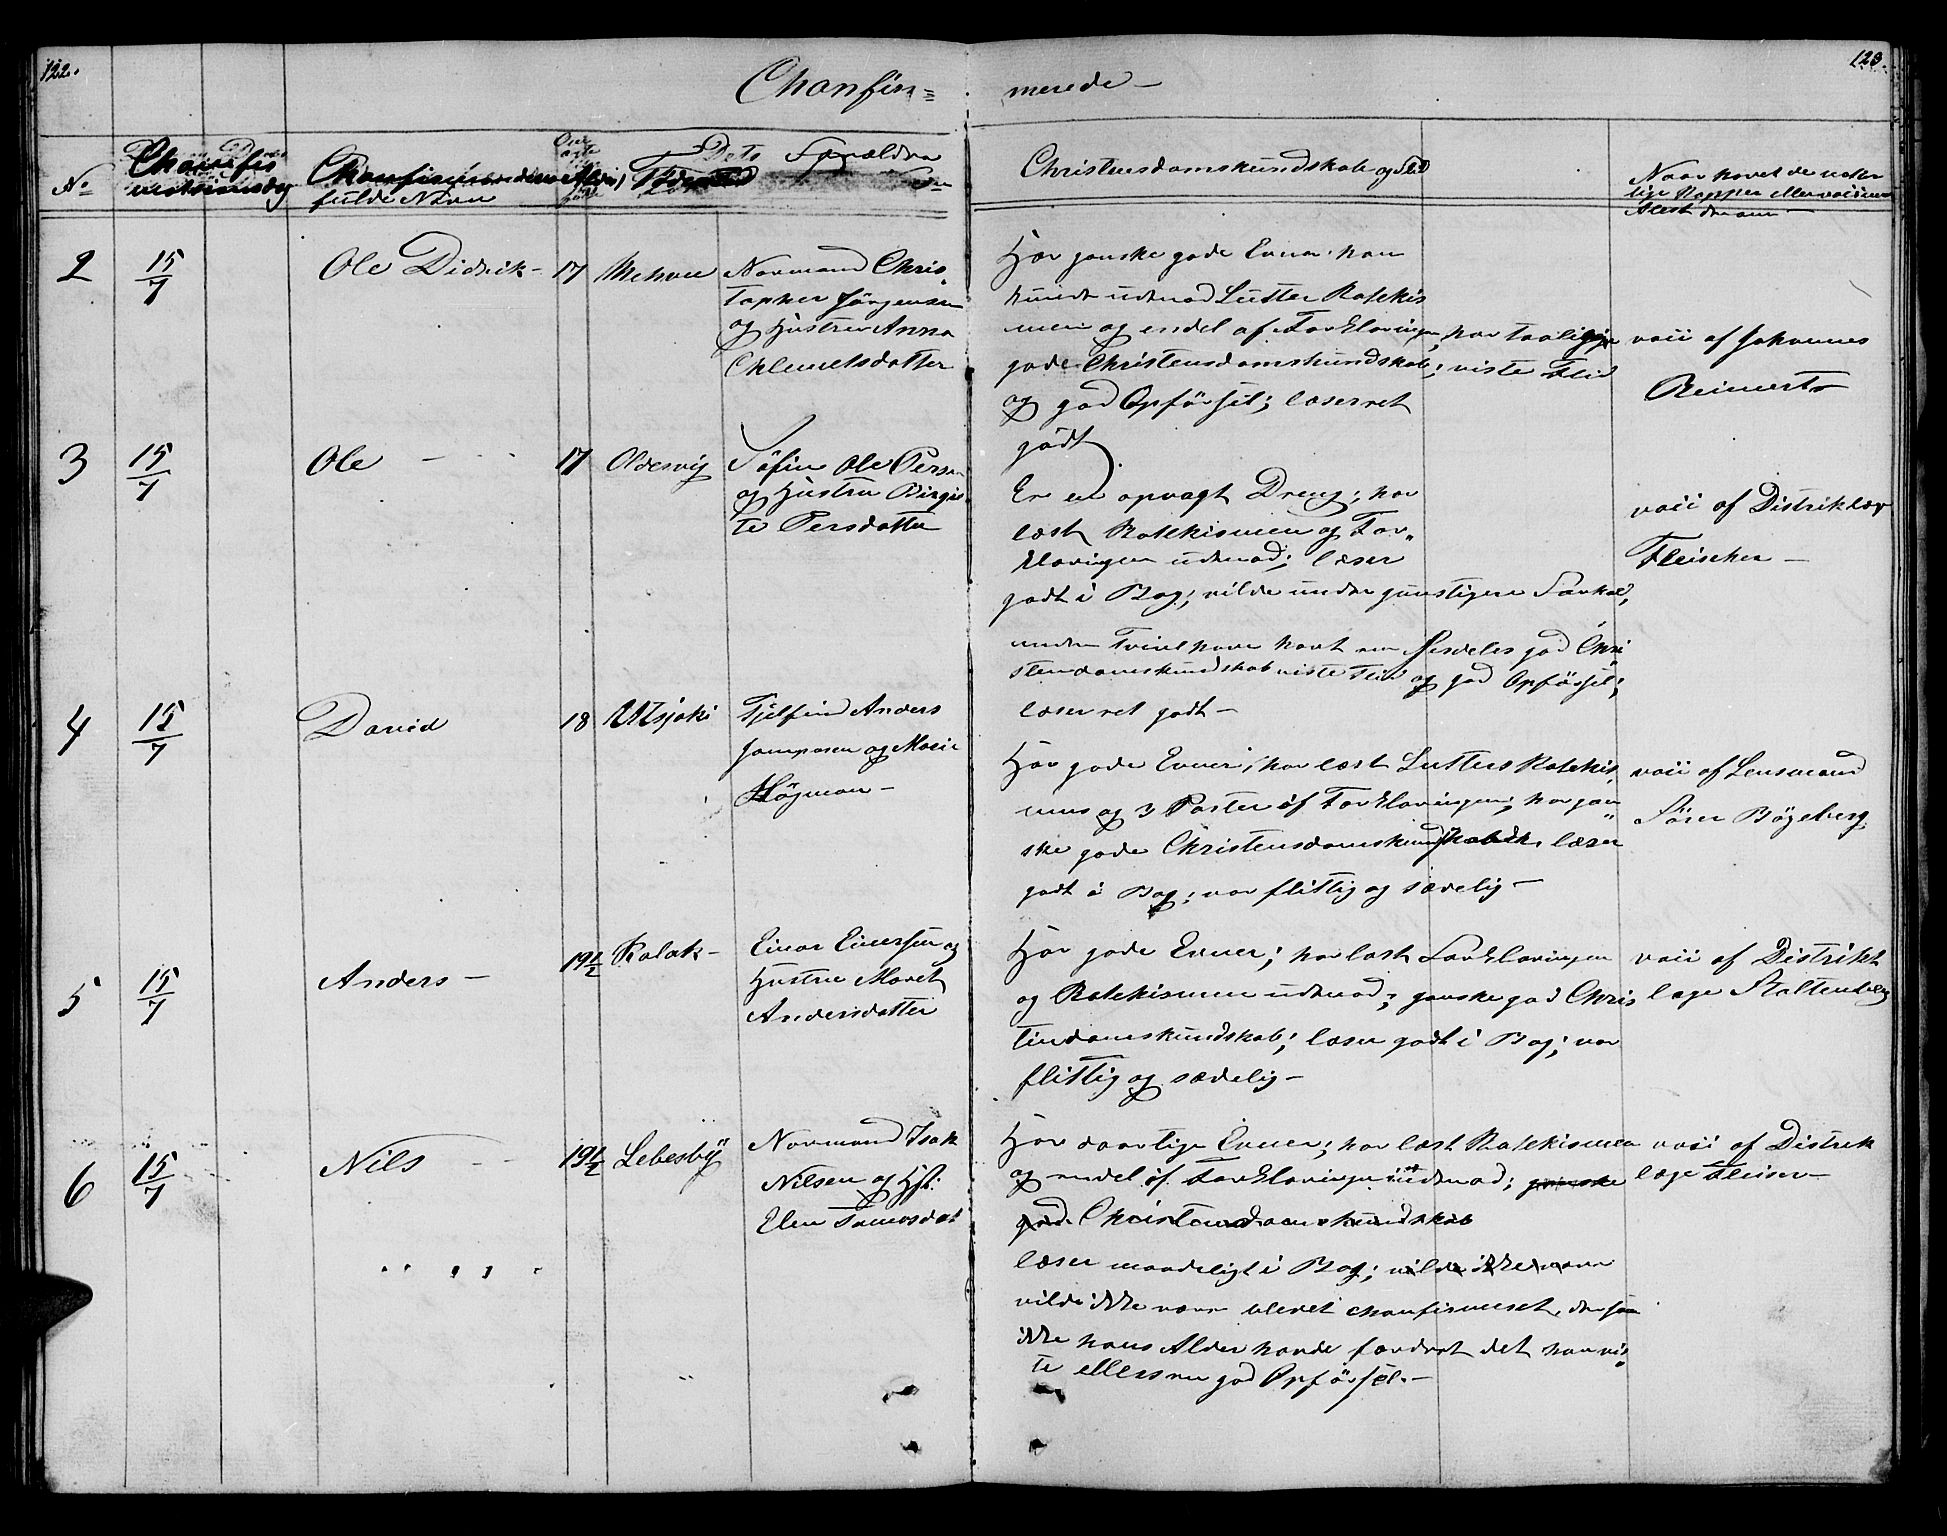 122.
123.
Chonfir=
merede –
No
fulde Navn
Forældre
Christensdomskundskab og Flid
Naar havet de natur
lige Kopper eller vaccineret
Attest derom –
2
15/7
Ole Didrik –
17
Mehvn
Normand Chris
topher Jørgensen
og Hustru Anna
Chlemetsdatter
Har ganske gode Evner; kan
kundt udenad Luther Katekis
men og endel af Forklaringen; har taalige
gode Christensdomskundskab; viste Flid
og god Opførsel; læser ret
godt
vacc af Johannes
Reinerts
3
15/7
Ole –
17
Oldervig
Søfin Ole Persen
og Hustru Birgit
te Persdatter
Er en opvagt Dreng; har
læst Katekismen og For
klaringen udenad; læser
godt i Bog; vilde under gunstigere Forhol
uden Tvivl have havt en særdeles god Chri
stendomskundskab viste Flid og god Opførsel;
læser ret godt –
vacc af Distriktslæge
Fleischer –
4
15/7
David
18
Utsjoki
Fjelfind Anders
Jompasen og Marie
Högman –
Har gode Evner; har læst Luthers Katekis
mus og 3 Parter af Forklaringen; har gan
ske gode Christensdomskundskab; læser
godt i Bog; var flittig og sædelig –
vacc af Lensmand
Sører Bøgeberg
5
15/7
Anders –
19½
Kalak –
Einar Einersen og
Hustru Maret
Andersdatter
Har gode Evner; har læst Forklaringen
og Katekismen udenad; ganske god Chris
tendomskundskab; læser godt i Bog; var
flittig og sædelig –
vacc af Distrikt
læge Stoltenberg
6
15/7
Nils
19½
Lebesby
Normand Isak
Nilsen og Hst:
Elen Tomasdat
Har daarlige Evner; har læst Katekismen
og endel af Forklaringen udenad; ganske
god Christensdomskundskab
læser maadeligt i Bog; vilde ikke være
vilde ikke være blevet chonfirmeret, dersom
ikke hans Alder havde fordret det han vis
te ellers en god Opførsel. –
vacc af Distrik
læge Fleiser –